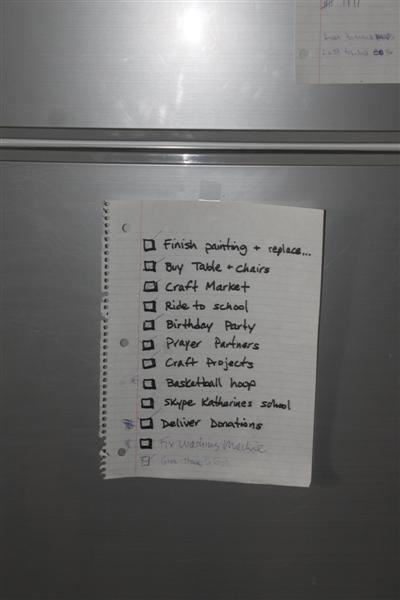 Finish painting + replace...
Buy Table + chairs
Craft Market
Ride to school
Birthday Party
Prayer Partners
Craft Projects
Basketball hoop
Skype Katherines school
Deliver Donations
Fix Washing Machine